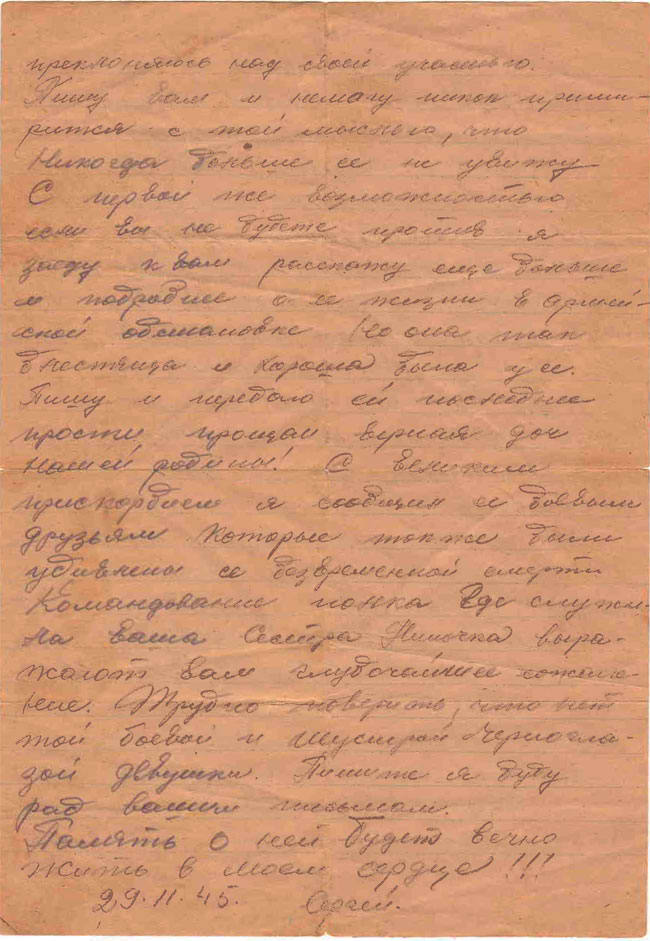 преклоняюсь над своей участью.
Пишу вам и немагу никак прими-
рится с той мыслью, что
Никогда больше ее не увижу
С первой же возможностью
если вы не будете против я
заеду к вам расскажу еще больше
и подробнее о ее жизни в армей-
ской обстановке Но она так
блестяща и хороша была у ее.
Пишу и передаю ей последнее
прости, прощай верная доч
нашей родины! С великим
прискорбием я сообщил ее боевым
друзьям Которые также были
удивлены ее безвременной смерти
Командование полка Где служи-
ла ваша Сестра Ниночка выра-
жают вам глубочайшее сожале-
ние. Трудно поверить, что нет
той боевой и Шустрой Черногла-
зой девушки. Пишите я буду
рад вашим письмам.
Память о ней будет вечно
жить в моем сердце!!!
29.11.45. Сергей.